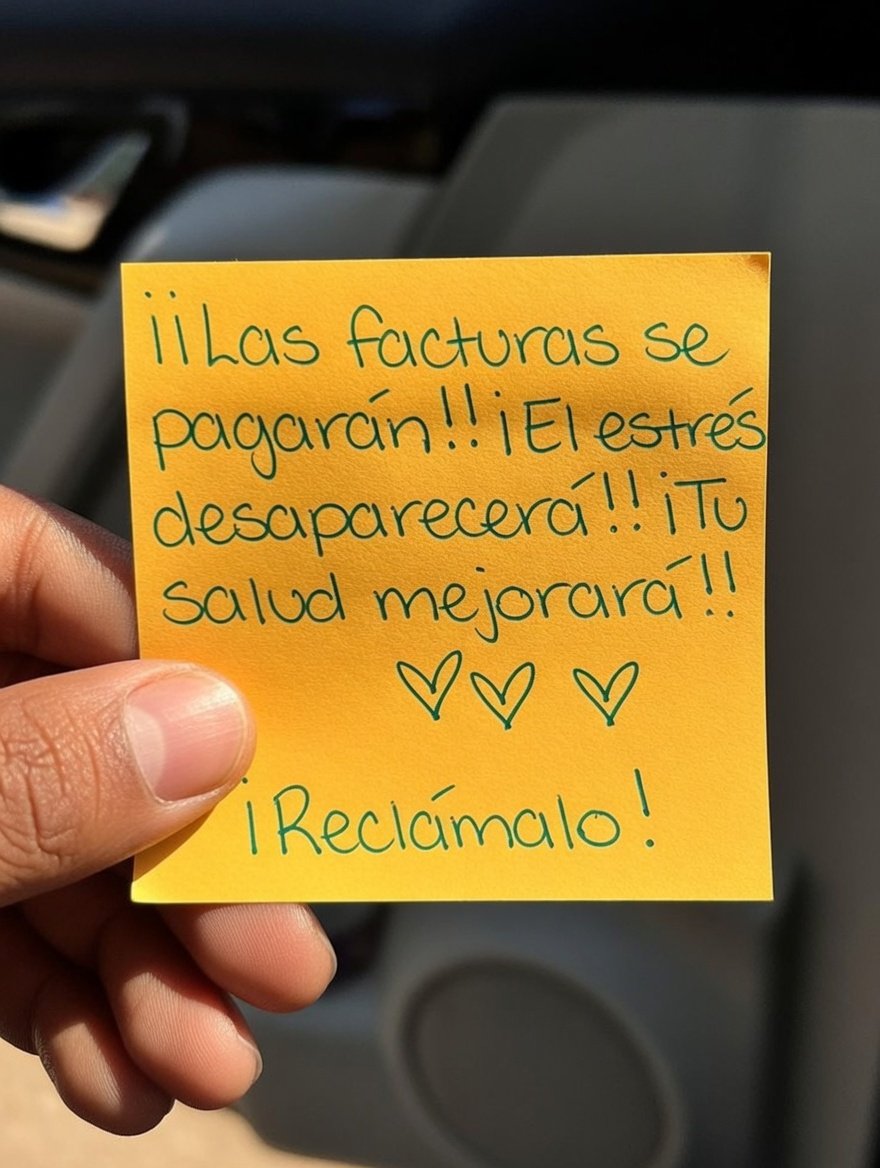 ¡¡Las facturas se
pagarán!! ¡El estrés
desaparecerá!! ¡Tu
salud mejorará!!
¡Reclámalo!